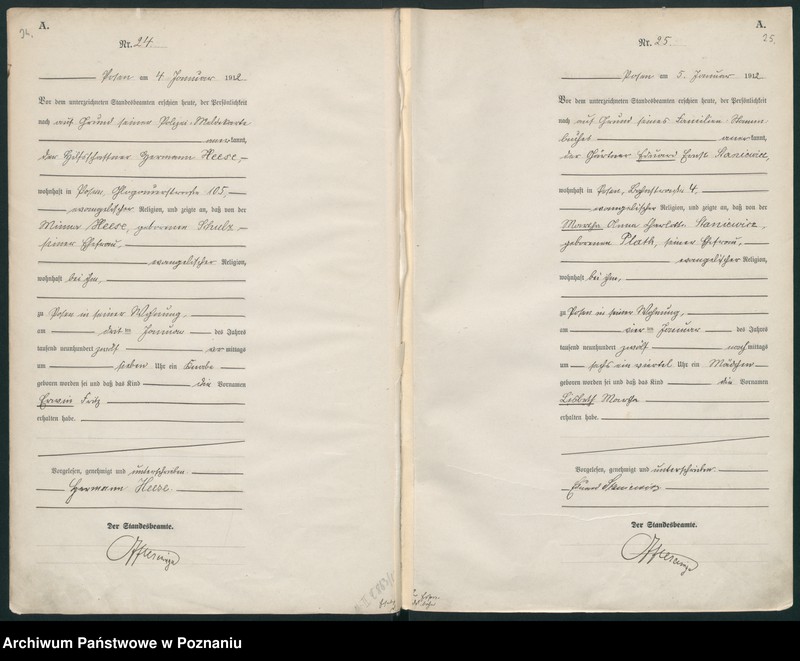 A.
24.
Nr. 24.
Posen am 4. Januar 1912
Vor dem unterzeichneten Standesbeamten erschien heute, der Persönlichkeit
nach auf Grund seiner Polizei-Meldekarte
anerkannt,
der Hermann Heese,
wohnhaft in Posen, Glogauerstraße 105,
evangelischer Religion, und zeigte an, daß von der
Minna Heese, geborenen Schulz,
seiner Ehefrau,
evangelischer Religion,
wohnhaft bei ihm,
zu Posen in seiner Wohnung,
am drei ten Januar des Jahres
tausend neunhundert zwölf vormittags
um sieben Uhr ein Knabe
geboren worden sei und daß das Kind die Vornamen
Erwin Fritz
erhalten habe.
Vorgelesen, genehmigt und unterschrieben
Hermann Heese
Der Standesbeamte.
A.
25.
Nr. 25.
Posen am 5. Januar 1912
Vor dem unterzeichneten Standesbeamten erschien heute, der Persönlichkeit
nach auf Grund seines Familien-Stamm-
buches anerkannt,
der Gärtner Eduard Ernst Staniewicz,
wohnhaft in Posen, 4,
evangelischer Religion, und zeigte an, daß von der
Martha Anna Charlotte Staniewicz,
geborenen Plath, seiner Ehefrau,
evangelischer Religion,
wohnhaft bei ihm,
zu Posen in seiner Wohnung,
am vier ten Januar des Jahres
tausend neunhundert zwölf nachmittags
um sechs ein viertel Uhr ein Mädchen
geboren worden sei und daß das Kind die Vornamen
Lisbeth Martha
erhalten habe.
Vorgelesen, genehmigt und unterschrieben
Eduard Staniewicz
Der Standesbeamte.
Archiwum Państwowe w Poznaniu